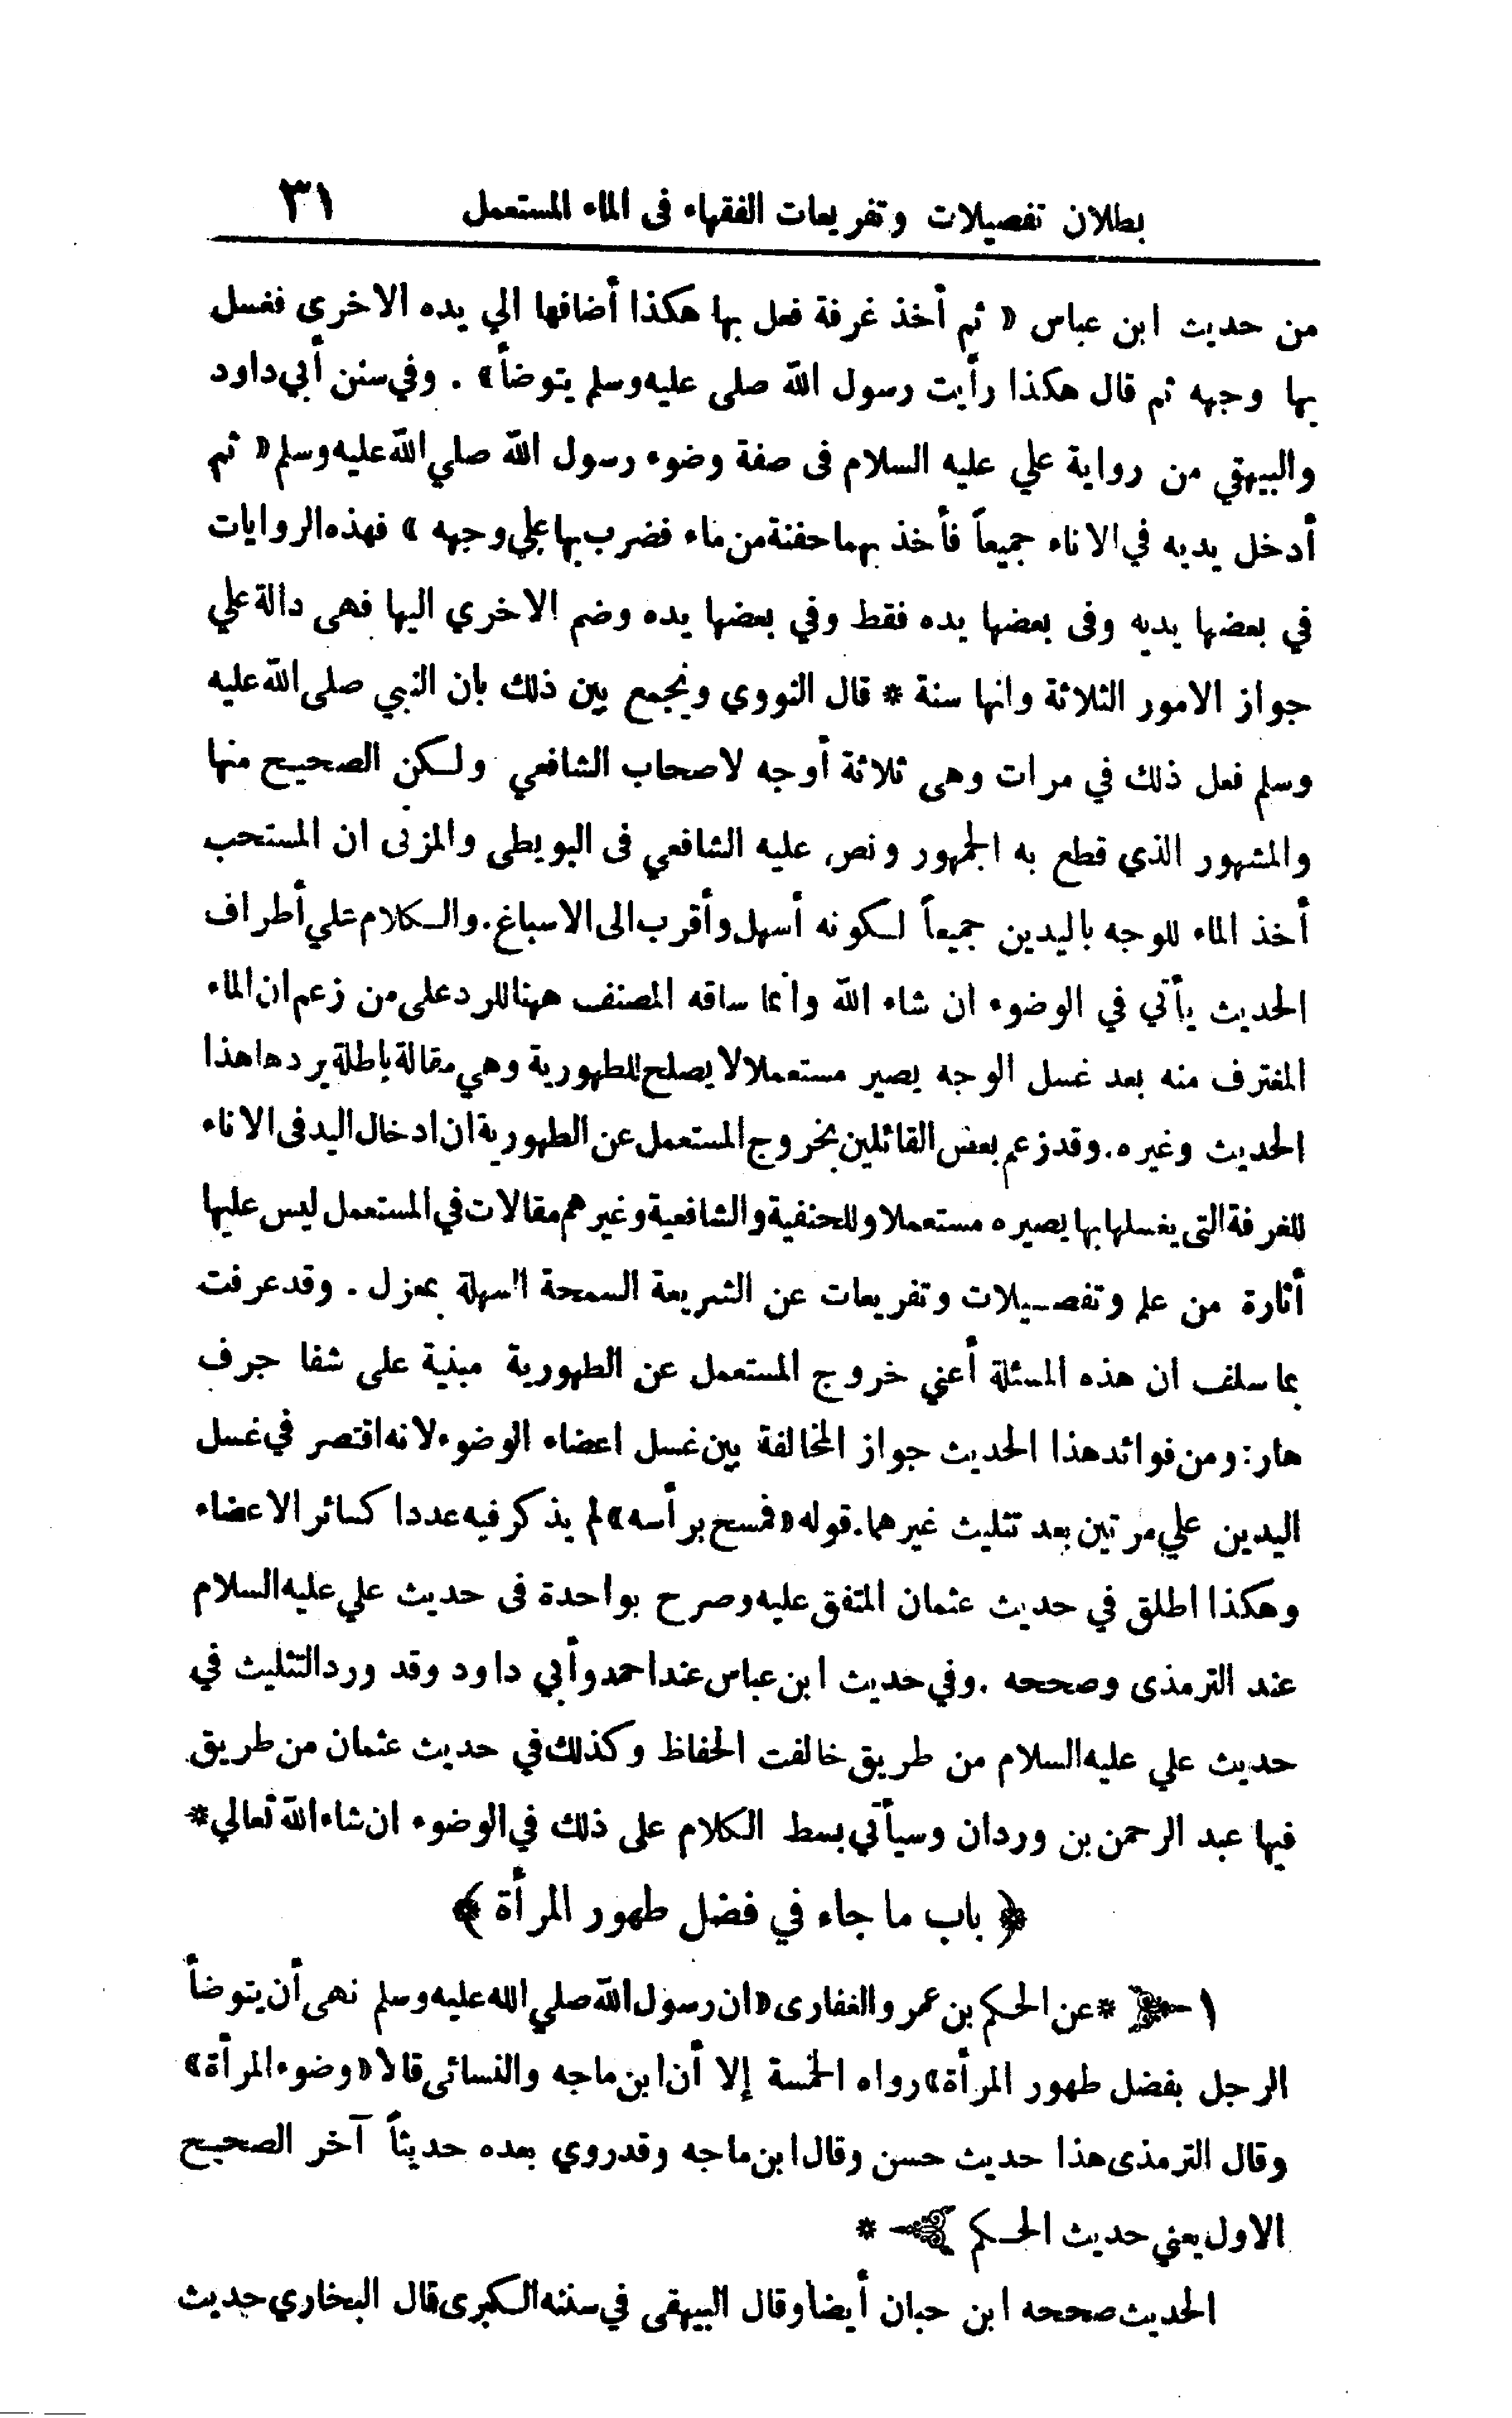 بطلان تفصيلات وتفريعات الفقهاء فى الماء المستعمل ٣١
من حديث ابن عباس « ثم أخذ غرفة فعل بها هكذا أضافها الي يده الاخري فغسل
بها وجهه ثم قال هكذا رأيت رسول الله صلى عليه وسلم يتوضأ» . وفي سنن أبي داود
والبيهقي من رواية علي عليه السلام فى صفة وضوء رسول الله صلي الله عليه وسلم « ثم
أدخل يديه في الاناء جميعاً فأخذ بهما حفنة من ماء فضرب بها علي وجهه » فهذه الروايات
في بعضها يديه وفى بعضها يده فقط وفي بعضها يده وضم الاخري اليها فهى دالة علي
جواز الامور الثلاثة وانها سنة * قال النووي ويجمع بين ذلك بان النبي صلى الله عليه
وسلم فعل ذلك في مرات وهى ثلاثة أوجه لاصحاب الشافعي ولكن الصحيح منها
والمشهور الذي قطع به الجمهور ونص عليه الشافعي فى البويطى والمزنى ان المستحب
أخذ الماء للوجه باليدين جميعاً لكونه أسهل وأقرب الى الاسباغ. والكلام علي أطراف
الحديث يأتي في الوضوء ان شاء الله وانما ساقه المصنف ههنا للرد على من زعم ان الماء
المغترف منه بعد غسل الوجه يصير مستعملا لا يصلح للطهورية وهي مقالة باطلة يردها هذا
الحديث وغيره. وقد زعم بعض القائلين بخروج المستعمل عن الطهورية ان ادخال اليد فى الاناء
للغرفة التى يغسلها بها يصيره مستعملا وللحنفية والشافعية وغيرهم مقالات في المستعمل ليس عليها
أثارة من علم وتفصيلات وتفريعات عن الشريعة السمحة السهلة بمعزل . وقد عرفت
بما سلف ان هذه المسئلة أعني خروج المستعمل عن الطهورية مبنية على شفا جرف
هار: ومن فوائد هذا الحديث جواز المخالفة بين غسل اعضاء الوضوء لانه اقتصر في غسل
اليدين علي مرتين بعد تثليث غيرهما. قوله «فمسح برأسه» لم يذكر فيه عددا كسائر الاعضاء
وهكذا اطلق في حديث عثمان المتفق عليه وصرح بواحدة فى حديث علي عليه السلام
عند الترمذى وصححه . وفي حديث ابن عباس عند احمد وأبي داود وقد ورد التثليث في
حديث علي عليه السلام من طريق خالفت الحفاظ وكذلك في حديث عثمان من طريق
فيها عبد الرحمن بن وردان وسيأتي بسط الكلام على ذلك في الوضوء ان شاء الله تعالي *
﴿ باب ما جاء في فضل طهور المرأة ﴾
١ - * عن الحكم بن عمرو الغفارى «ان رسول الله صلي الله عليه وسلم نهى أن يتوضأ
الرجل بفضل طهور المرأة» رواه الخمسة إلا أن ابن ماجه والنسائى قالا «وضوء المرأة»
وقال الترمذى هذا حديث حسن وقال ابن ماجه وقد روي بعده حديثاً آخر الصحيح
الاول يعني حديث الحكم *
الحديث صححه ابن حبان أيضا وقال البيهقى في سننه الكبرى قال البخاري حديث